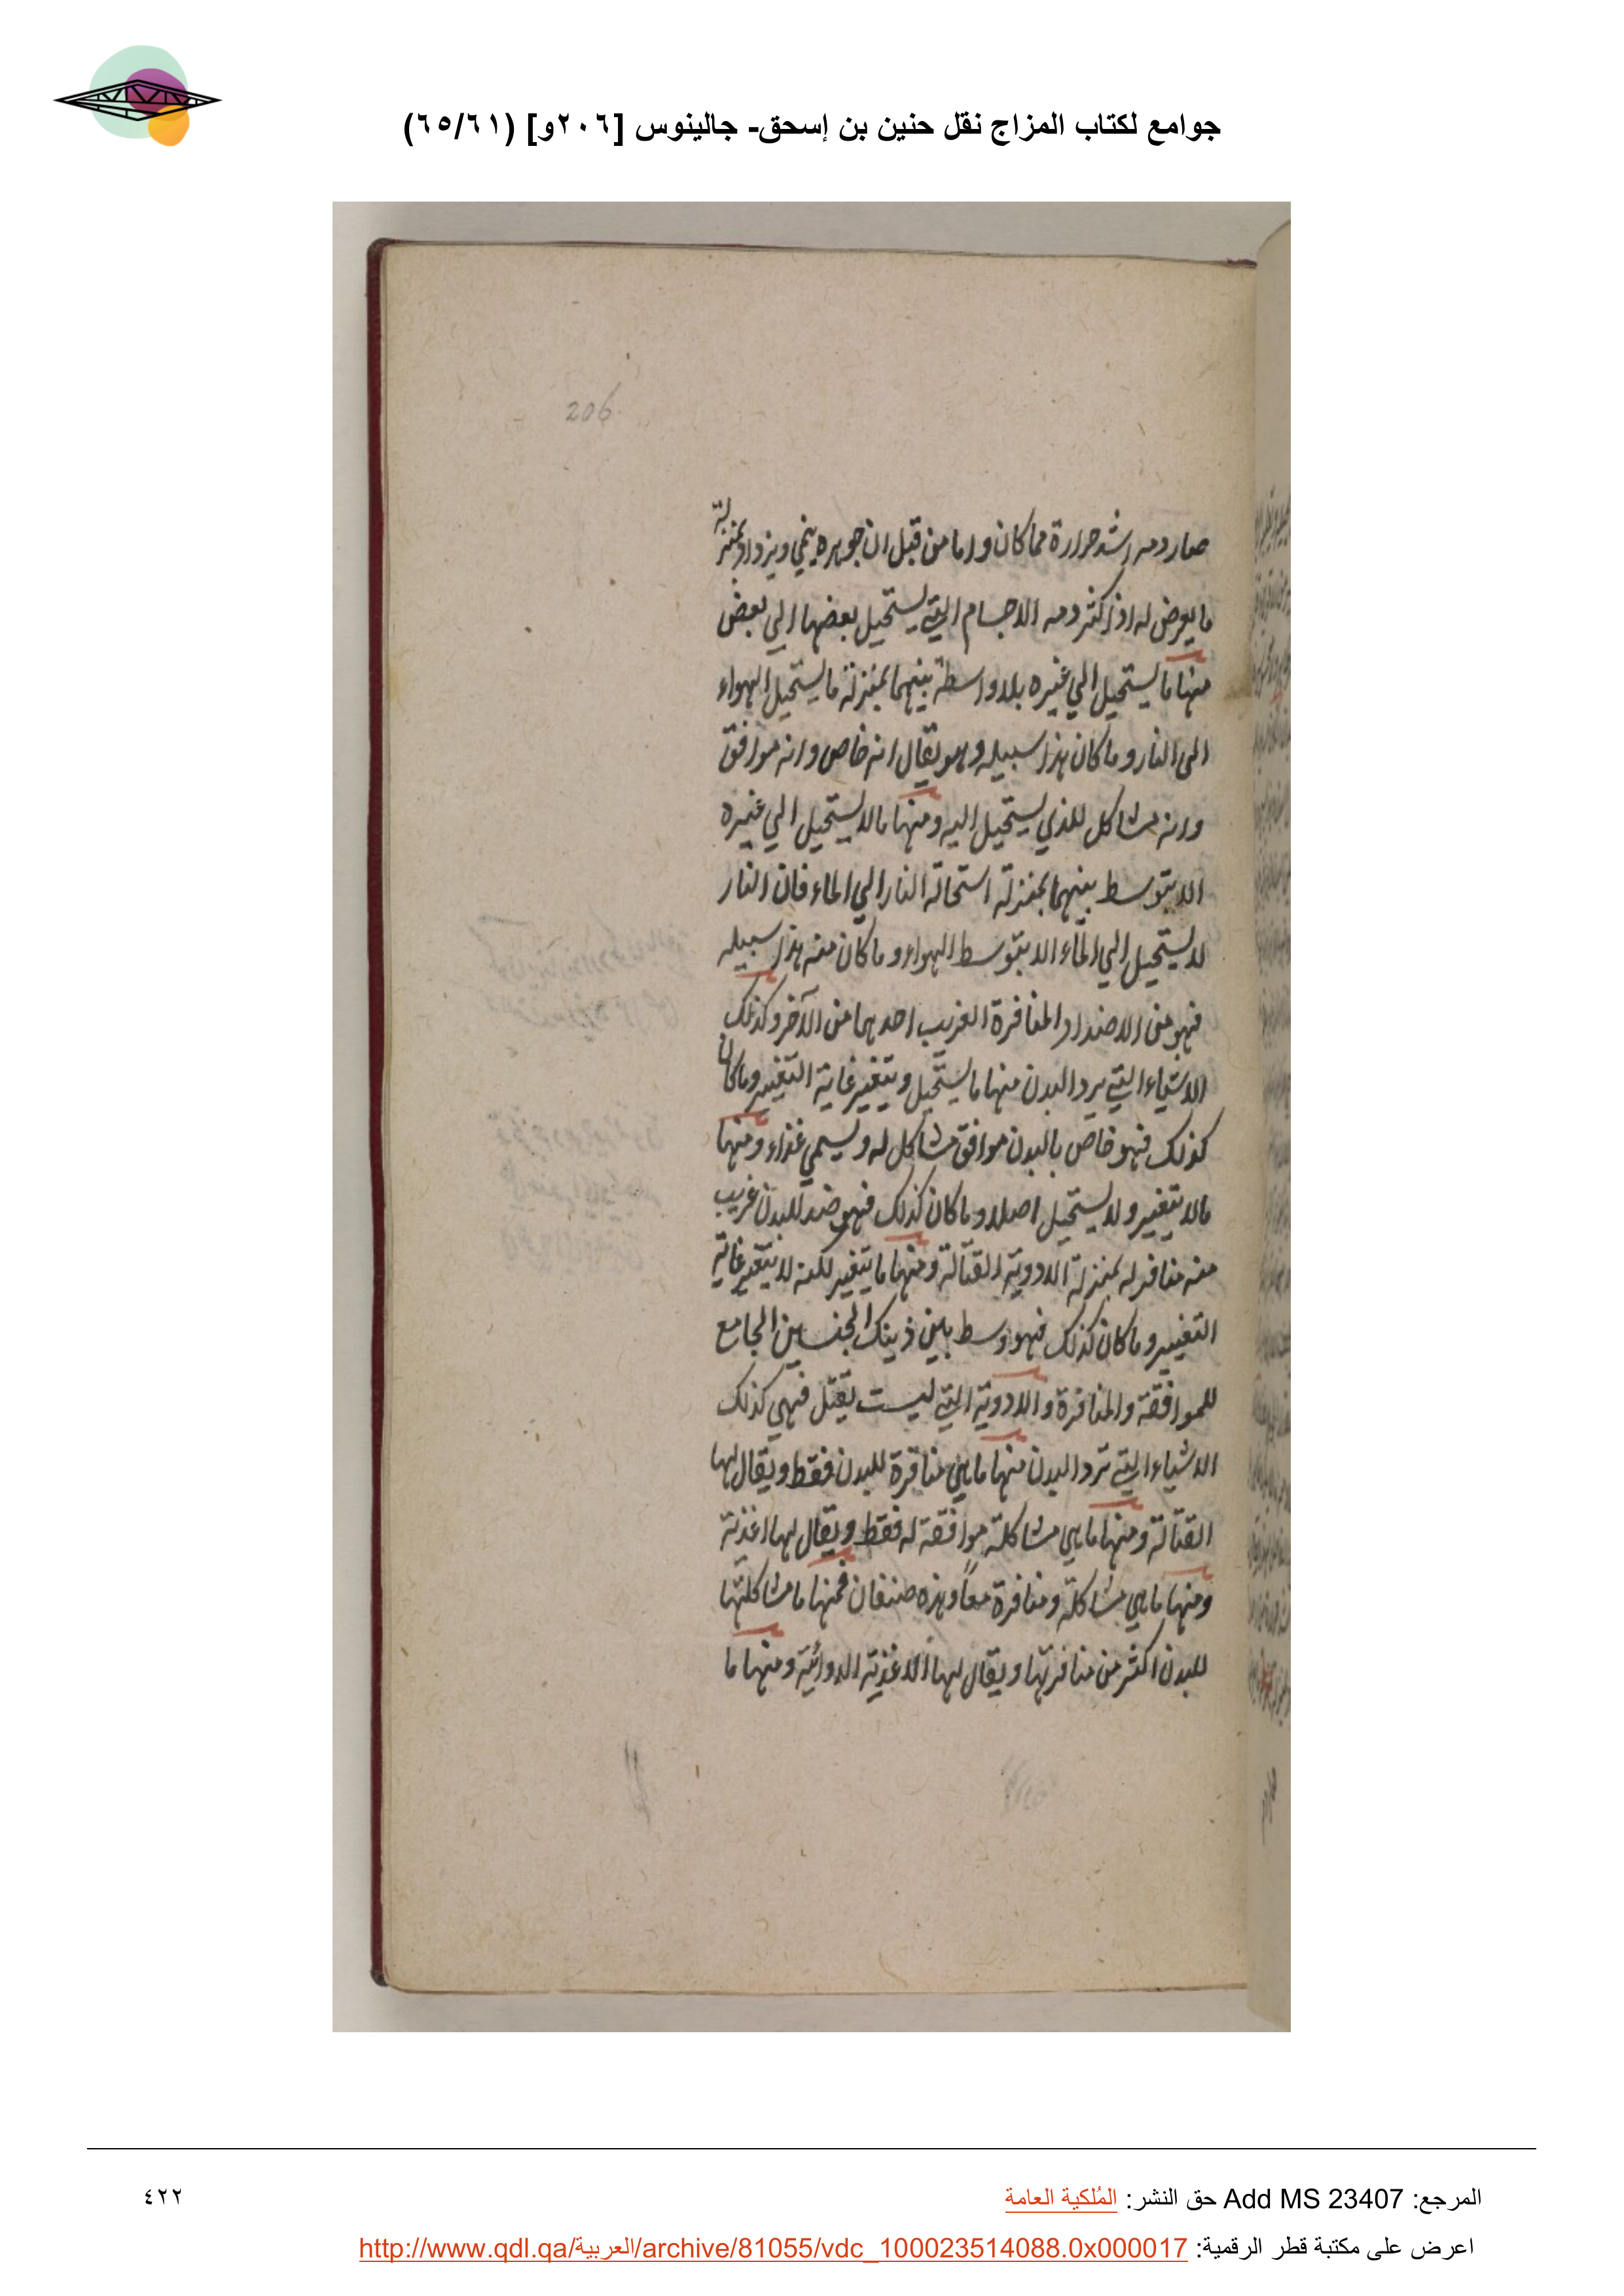 جوامع لكتاب المزاج نقل حنين بن إسحق- جالينوس [٢٠٦و] (٦٥/٦١)
206
صار دمه اشد حرارة مما كان واما من قبل ان جوهره ينمي ويزداد بمنزلة
ما يعرض له اذا كثر دمه الاجسام التي يستحيل بعضها الي بعض
منها ما يستحيل الي غيره بلا واسطة بينهما بمنزلة ما يستحيل الهواء
الى النار وما كان هذا سبيله وهو يقال انه خاص وانه موافق
وانه مشاكل للذي يستحيل اليه ومنها ما لا يستحيل الي غيره
الا بتوسط بينهما بمنزلة استحالة النار الي الماء فان النار
لا يستحيل الي الماء الا بتوسط الهواء وما كان منه هذا سبيله
فهو من الاضداد المنافرة الغريب احدهما من الآخر وكذلك
الاشياء التي يرد البدن منها ما يستحيل ويتغير غاية التغيير وما كان
كذلك فهو خاص بالبدن موافق مشاكل له ويسمي غذاء ومنها
ما لا يتغير ولا يستحيل اصلا وما كان كذلك فهو ضد للبدن غريب
منه منافر له بمنزلة الادوية القتالة ومنها ما يتغير لكنه لا يتغير غاية
التغيير وما كان كذلك فهو وسط بين ذينك الجنسين الجامع
للموافقة والمنافرة والادوية التي ليست يقتل فهي كذلك
الاشياء التي ترد البدن منها ما هي منافرة للبدن فقط ويقال لها
القتالة ومنها ما هي مشاكلة موافقة له فقط ويقال لها اغذية
ومنها ما هي مشاكلة ومنافرة معاً وهذه صنفان فمنها ما مشاكلتها
للبدن اكثر من منافرتها ويقال لها الاغذية الدوائية ومنها ما
المرجع: Add MS 23407 حق النشر: المُلكية العامة
٤٢٢
اعرض على مكتبة قطر الرقمية: http://www.qdl.qa/العربية/archive/81055/vdc_100023514088.0x000017